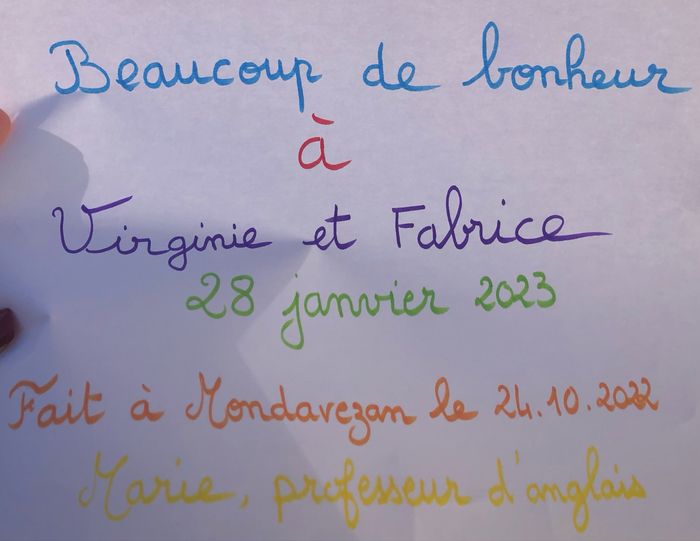 Beaucoup de bonheur
à
Virginie et Fabrice
28 janvier 2023
Fait à Mondavezan le 24.10.2022
Marie, professeur d'anglais